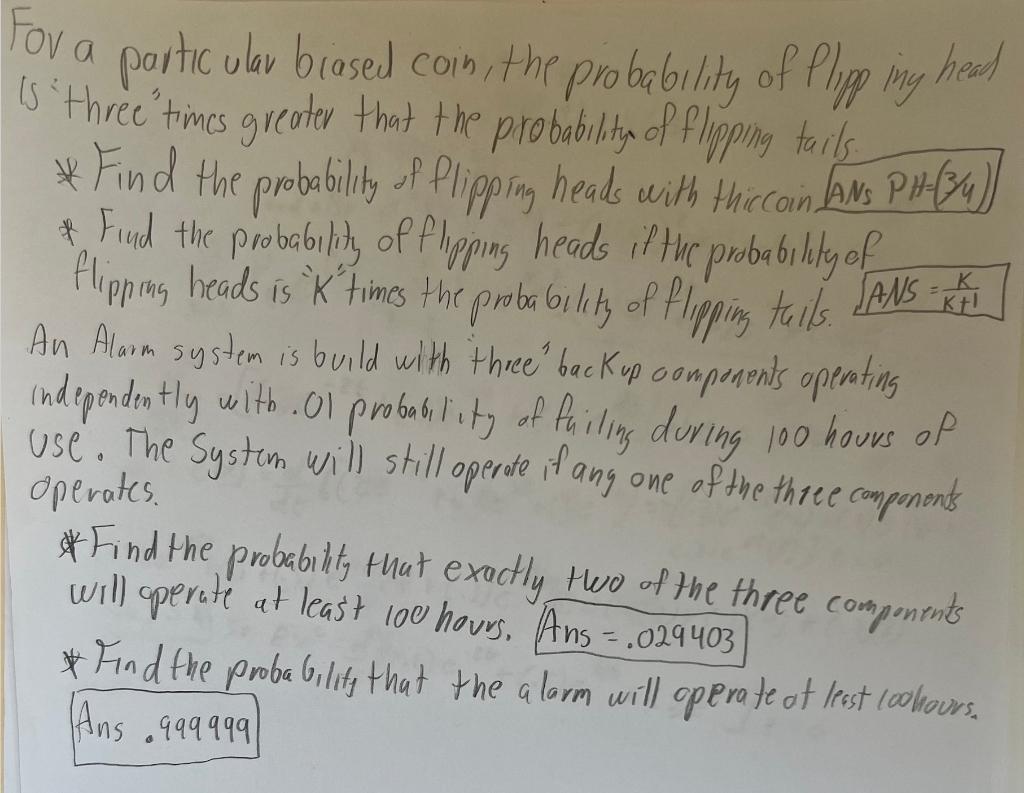 For a particular biased coin, the probability of flipping head
is "three" times greater that the probability of flipping tails.
* Find the probability of flipping heads with this coin ANS PH=(3/4)
* Find the probability of flipping heads if the probability of
flipping heads is "K" times the probability of flipping tails. ANS = K/K+1
An Alarm system is build with "three" backup components operating
independently with .01 probability of failing during 100 hours of
use. The System will still operate if any one of the three components
operates.
* Find the probability that exactly two of the three components
will operate at least 100 hours. Ans = .029403
* Find the probability that the alarm will operate at least 100 hours.
Ans .999999